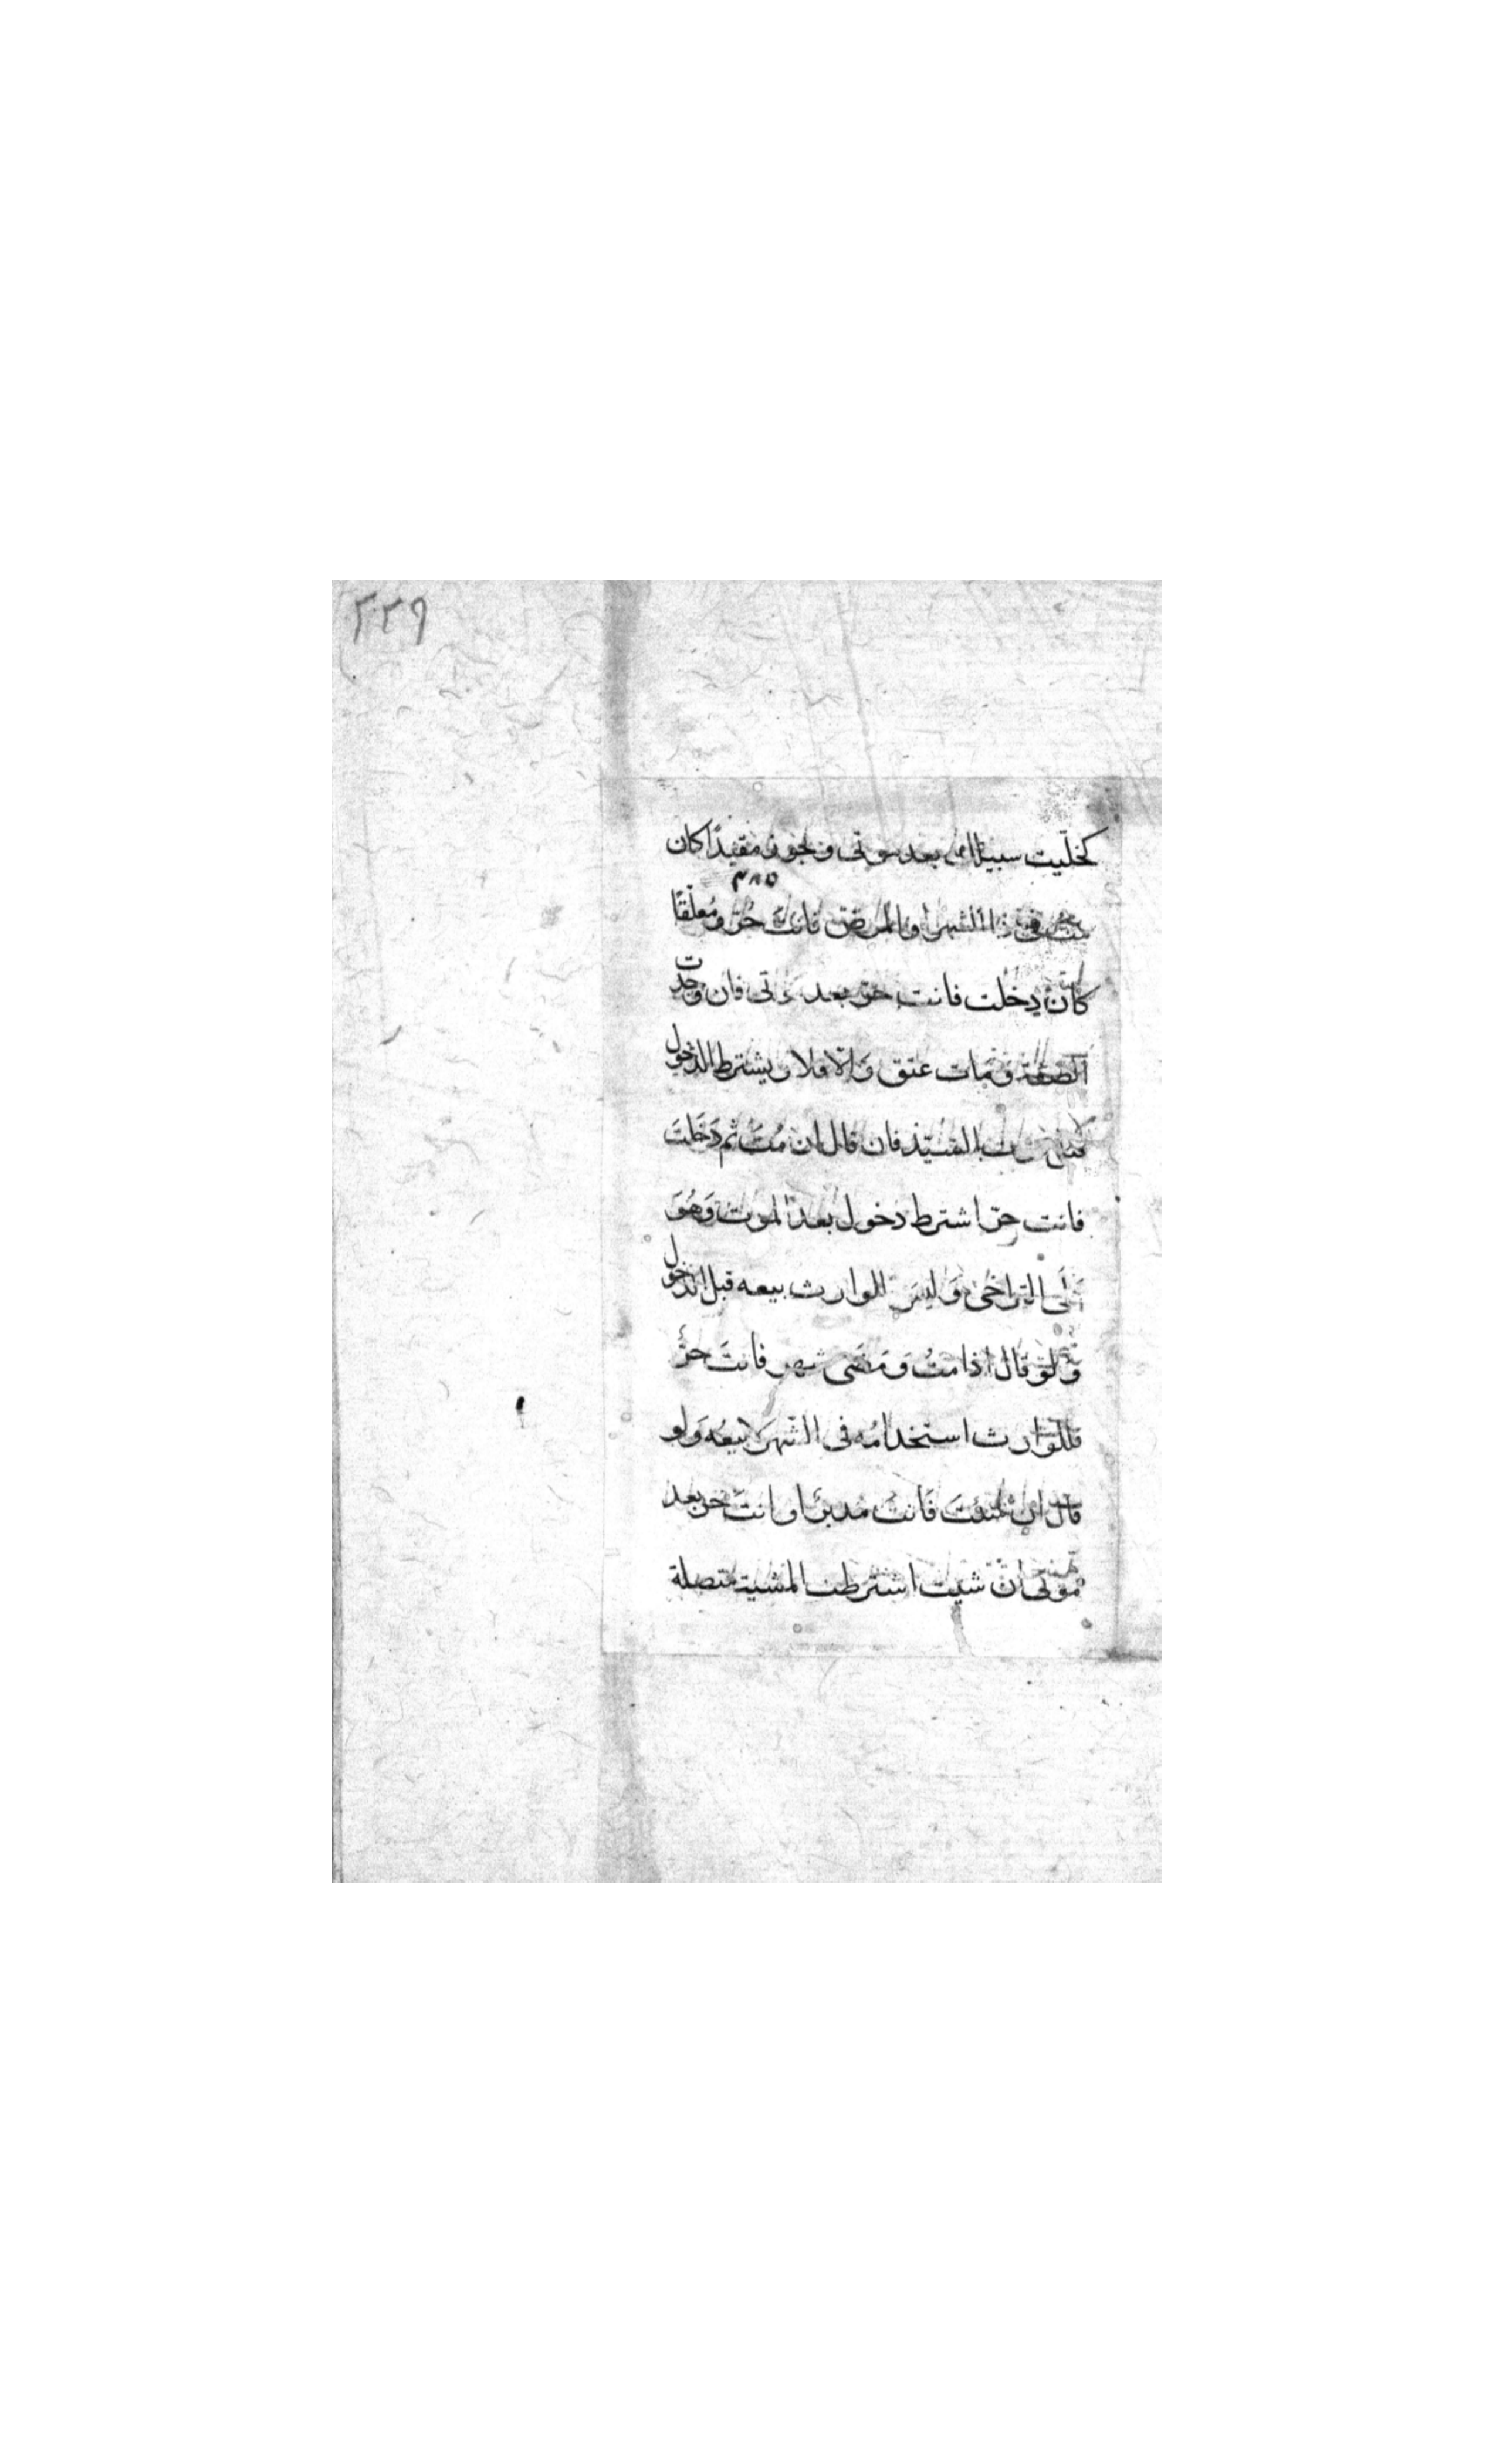 ٢٢٩
كخلّيت سبيلك بعد موتى ويجوز مقيدًا كان
٣٨٥
متّ فى ذا الشهر او المرض فانت حُرّ ومُعلّقًا
كان دخلت فانت حرّ بعد موتى فان وجدت
الصفة ومات عتق وَالّا فلا ويشترط الدخول
قبل موت السيّد فان قال ان مُتّ ثم دَخَلتَ
فانت حرّ اشترط دخول بعد الموت وَهُوَ
على التراخى وَليسَ للوارث بيعه قبل الدخول
وَلَو قال اذا متُ وَ مَضَى شهر فانتَ حرٌّ
فللوارث استخدامُه فى الشهر لا بيعُه وَلو
قال ان شئتَ فَانتَ مُدبّرٌ او انتَ حرّ بعد
مَوتى ان شيت اشترطت المشية متصلة